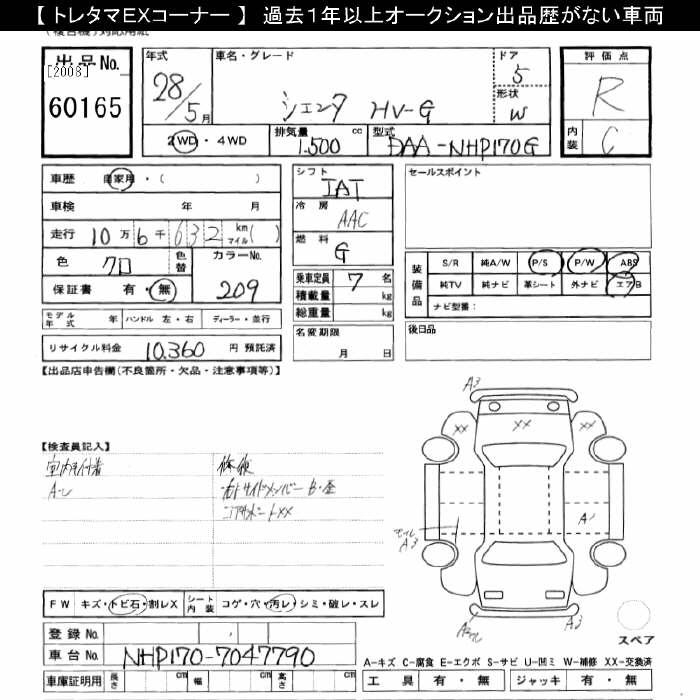 【 トレタマEXコーナー 】 過去1年以上オークション出品歴がない車両
出品No.
[2008]
60165
年式
28/5月
車名・グレード
シエンタ HV-G
ドア
5
形状
W
評価点
R
内装
C
2WD・4WD
排気量
1.500 cc
型式
DAA-NHP170G
車歴 自家用・( )
車検 年 月
走行 10万6千632 km マイル( )
色 クロ
色替
カラーNo.
209
保証書 有・無
モデル年式 年
ハンドル 左・右
ディーラー・並行
リサイクル料金 10.360 円 預託済
シフト
IAT
冷房
AAC
燃料
G
乗車定員 7 名
積載量 kg
総重量 kg
名変期限
月 日
セールスポイント
装備品
S/R 純A/W P/S P/W ABS
純TV 純ナビ 革シート 外ナビ エアB
ナビ型番：
後日品
【出品店申告欄(不良箇所・欠品・注意事項等)】
【検査員記入】
A3
XX XX XX
A1
A3
スペア
FW キズ・トビ石・割レX
シート内装 コゲ・穴・汚レ・シミ・破レ・スレ
登録No.
車台No. NHP170-7047790
車庫証明用 長さ cm 幅 cm 高さ cm
A-キズ C-腐食 E-エクボ S-サビ U-凹ミ W-補修 XX-交換済
工具 有・無 ジャッキ 有・無